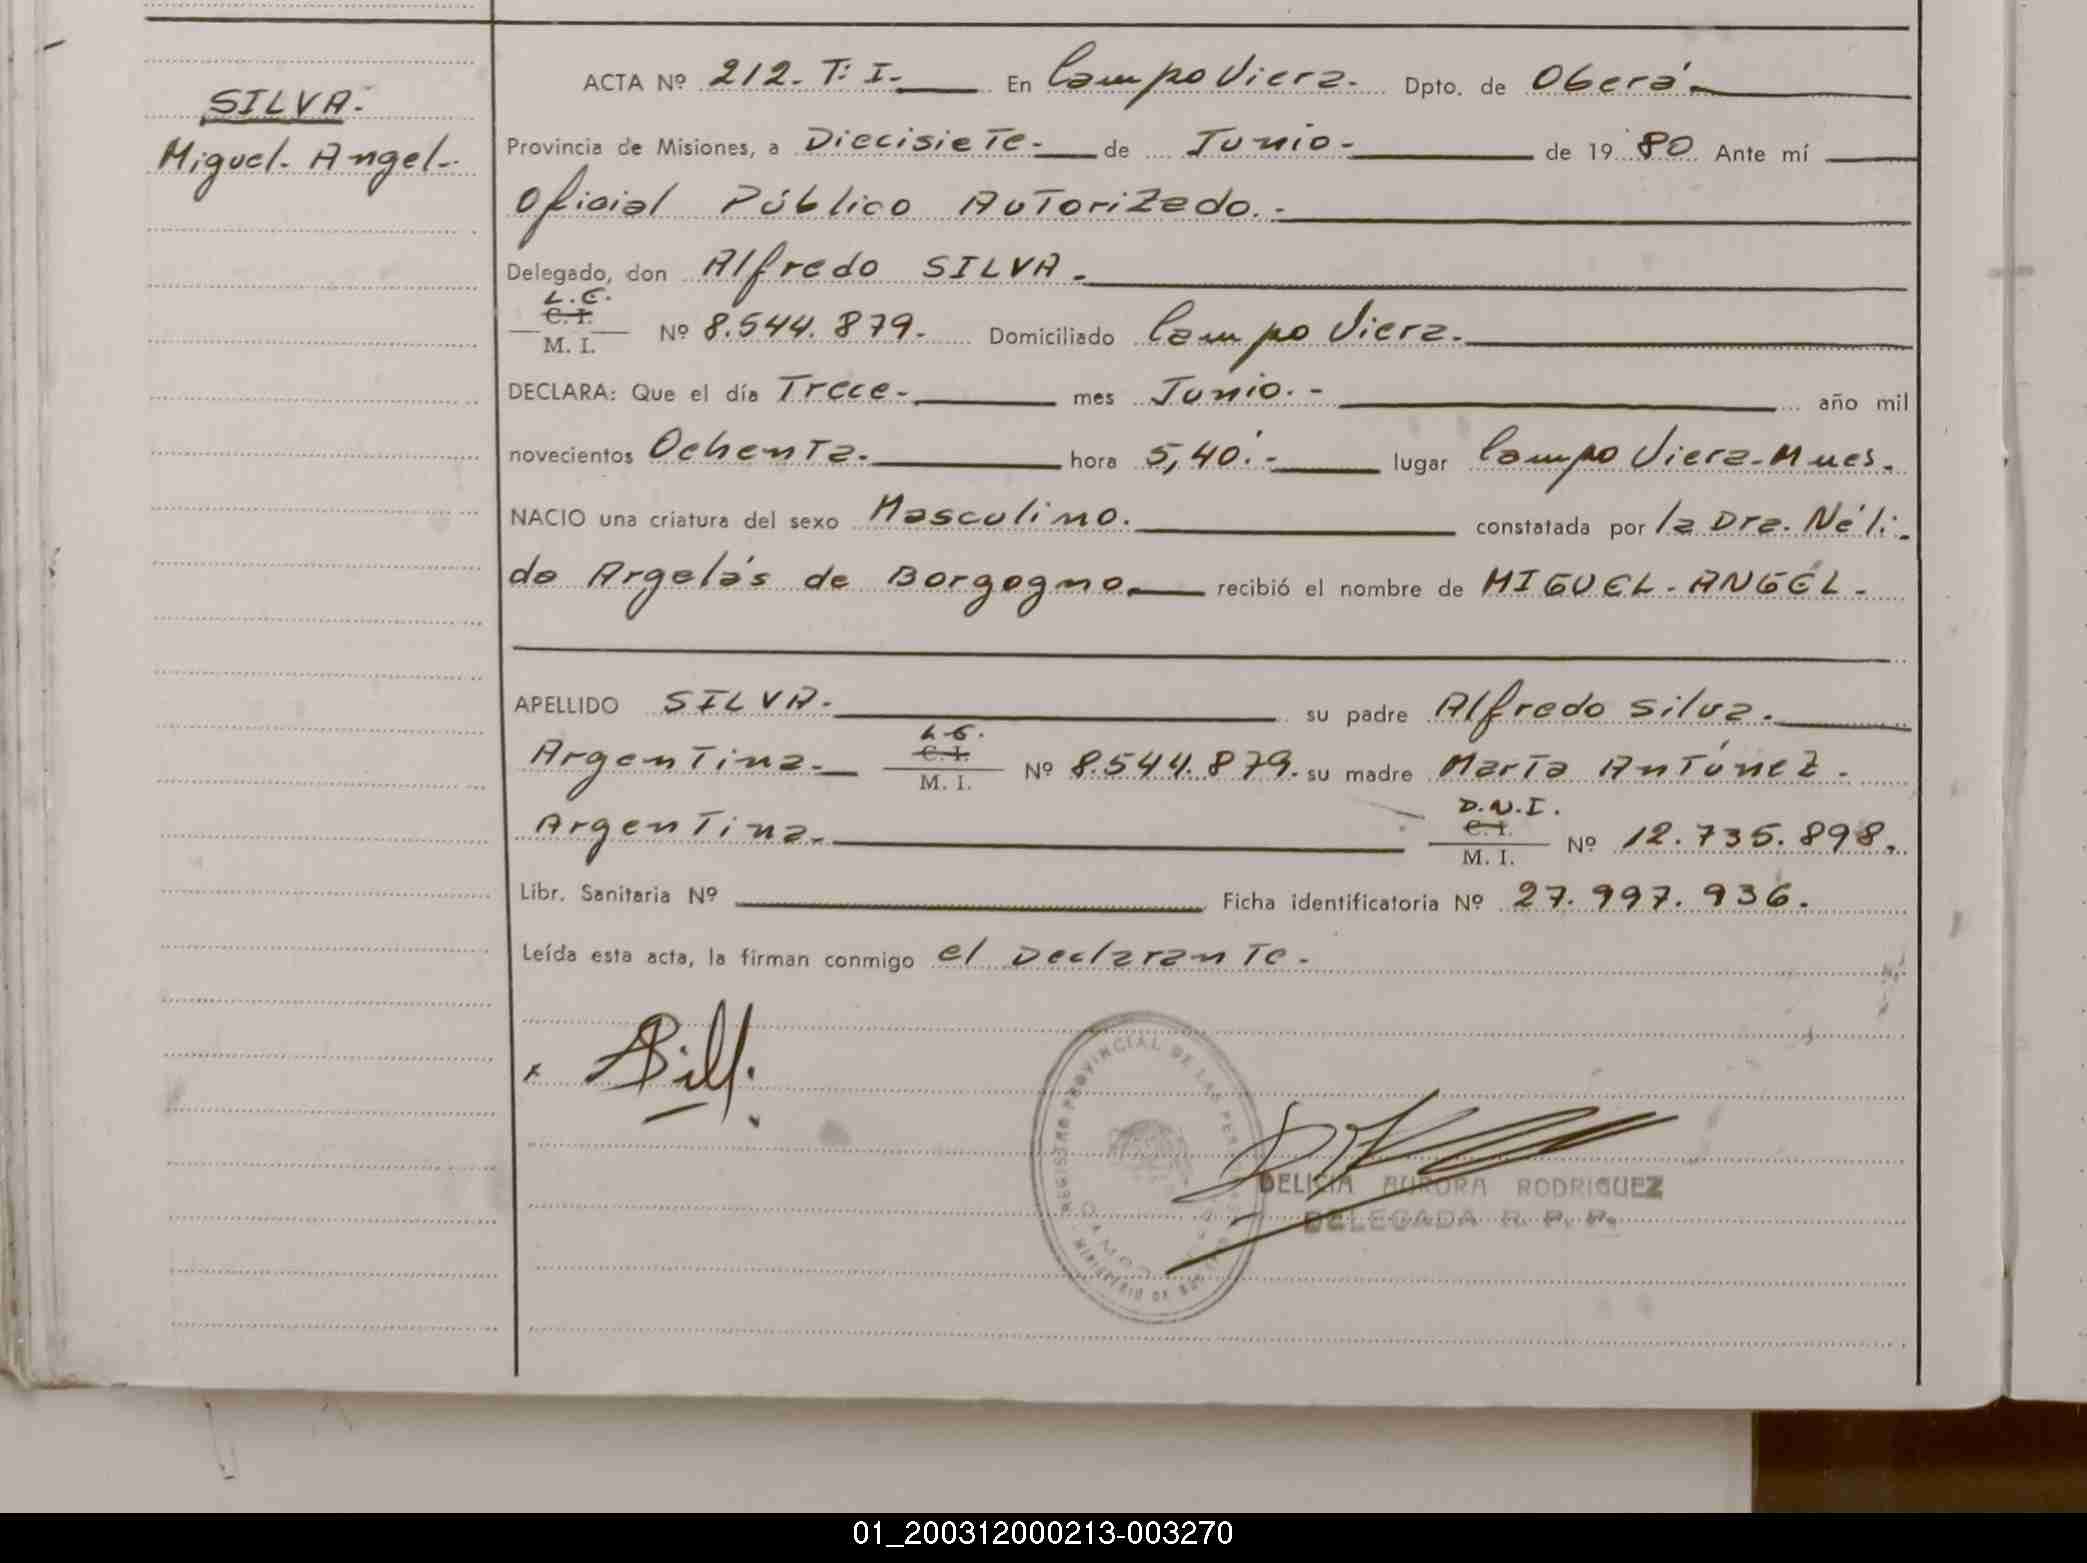 SILVA.-
Miguel. Angel.-
ACTA Nº 212. T: I. En Campo Viera. Dpto. de Oberá.
Provincia de Misiones, a Diecisiete. de Junio. de 1980 Ante mí
Oficial Público Autorizado.-
Delegado, don Alfredo SILVA.
L.E.
C. I.
M. I. Nº 8.544.879.- Domiciliado Campo Viera.
DECLARA: Que el día Trece. mes Junio.- año mil
novecientos Ochenta. hora 5,40.'- lugar Campo Viera-Mnes.
NACIO una criatura del sexo Masculino. constatada por la Dra. Néli-
da Argelás de Borgogno. recibió el nombre de MIGUEL-ANGEL.
APELLIDO SILVA. su padre Alfredo Silva.
L.E.
Argentina. C. I. Nº 8.544.879. su madre María Antúnez.
M. I.
D.N.I.
Argentina. C. I. Nº 12.735.898.
M. I.
Libr. Sanitaria Nº Ficha identificatoria Nº 27.997.936.
Leída esta acta, la firman conmigo el Declarante.
REGISTRO PROVINCIAL DE LAS PERSONAS
DELICIA AURORA RODRIGUEZ
DELEGADA R. P. P.
01_200312000213-003270